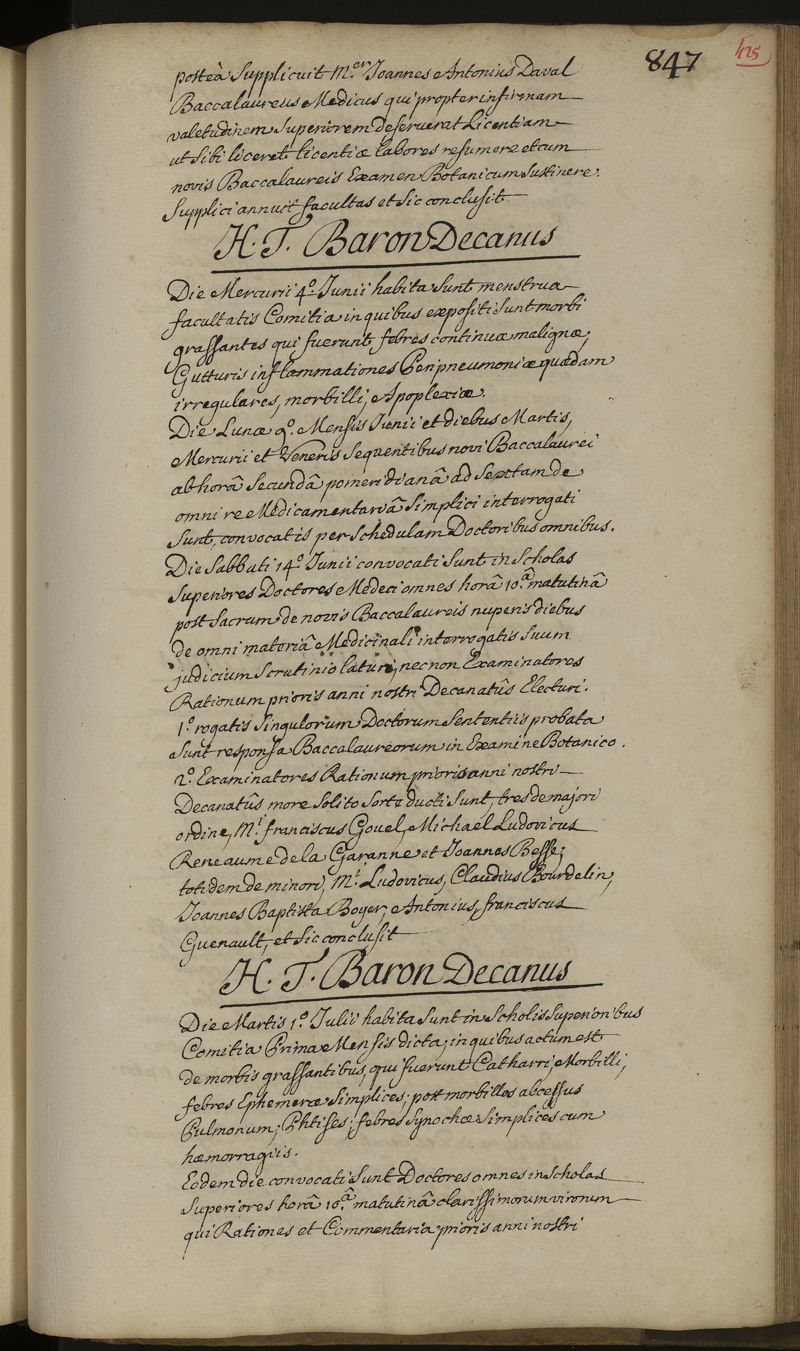 847
425
posteà Supplicuit M.er Joannes Antonius Daval
Baccalaureus Medicus qui propter infirmam
valetudinem Superiorem deseruerat Licentiam
ut Sibi liceret licentiæ labores resumere et cum
novis Baccalaureis Examen Botanicum Sustinere.
Supplici annuit facultas et Sic conclusit
H. T. Baron Decanus
Die Mercurii 4.º Junii habita Sunt menstrua
facultatis Comitia in quibus expositi Sunt morbi
grassantes qui fuerunt febres continuæ malignæ,
Gutturis inflammationes Peripneumoniæ quædam
irregulares, morbilli, Apoplexiæ.
Die Lunæ 9.º Mensis Junii et diebus Martis,
Mercurii et Veneris Sequentibus novi Baccalaurei
ab horâ Secundâ pomeridianâ ad Sextam de
omni re Medicamentariâ Simplici interrogati
Sunt, convocatis per Schedulam Doctoribus omnibus.
Die Sabbati 14.º Junii convocati Sunt in Scholas
Superiores Doctores Medeci omnes horâ 10.â matutinâ
post Sacrum de novis Baccalaureis nuperis diebus
de omni materiâ Medicinali interrogatis Suum
judicium Scrutinio laturi, necnon Examinatores
Rationum prioris anni nostri Decanatûs Electuri.
1.º rogatis Singulorum Doctorum Sententiis probata
Sunt responsa Baccalaureorum in Examine Botanico.
2.º Examinatores Rationum prioris anni nostri
Decanatûs more Solito Sorte ducti Sunt, tres de majori
ordine, M.i franciscus Gouel, Michaël Ludovicus
Reneaume de la Garanne et Joannes Besse;
totidem de minori, M.i Ludovicus, Claudius Bourdelin,
Joannes Baptista Boyer, Antonius, franciscus
Guenault, et Sic conclusit
H. T. Baron Decanus
Die Martis 1.º Julii habita Sunt in Scholis Superioribus
Comitia Prima Mensis dicta, in quibus actum est
de morbis grassantibus, qui fuerunt Catharri, Morbilli,
febres Ephemeræ Simplices, post morbillos abcessus
Pulmonum; Phtises; febres Synochæ Simplices cum
hæmorragiis.
Eodem die convocati Sunt Doctores omnes in Scholas
Superiores horâ 10.â matutinâ clarissimorum virorum
qui Rationes et Commentaria prioris anni nostri